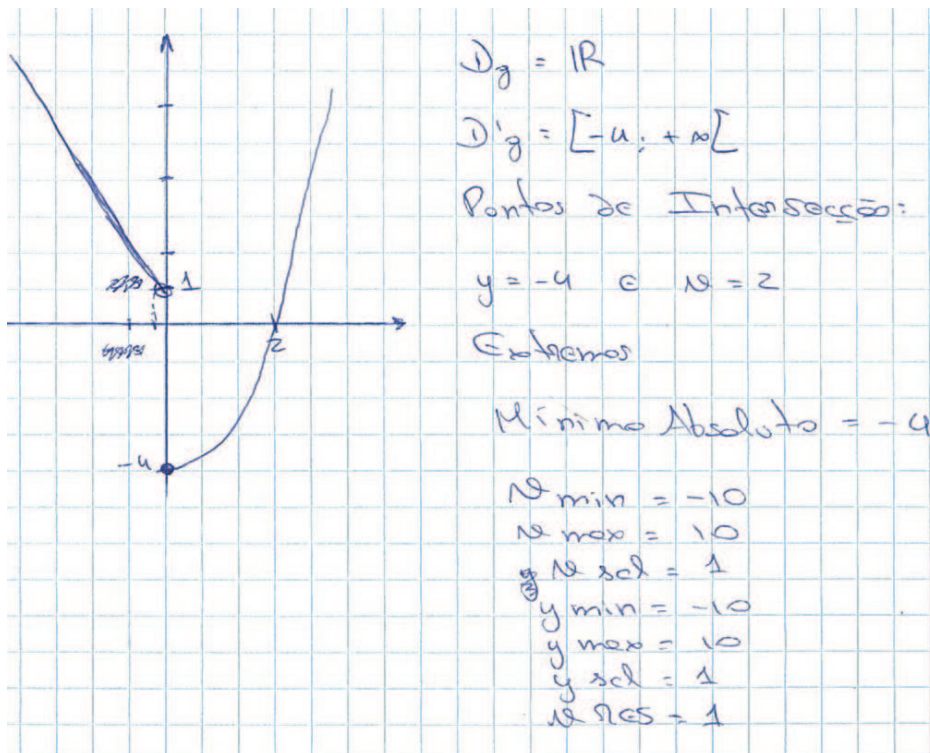 1
2
-4
Dg = IR
D'g = [-4; +∞[
Pontos de Intersecção:
y = -4 e x = 2
Extremos
Mínimo Absoluto = -4
x min = -10
x max = 10
x scl = 1
y min = -10
y max = 10
y scl = 1
x RES = 1